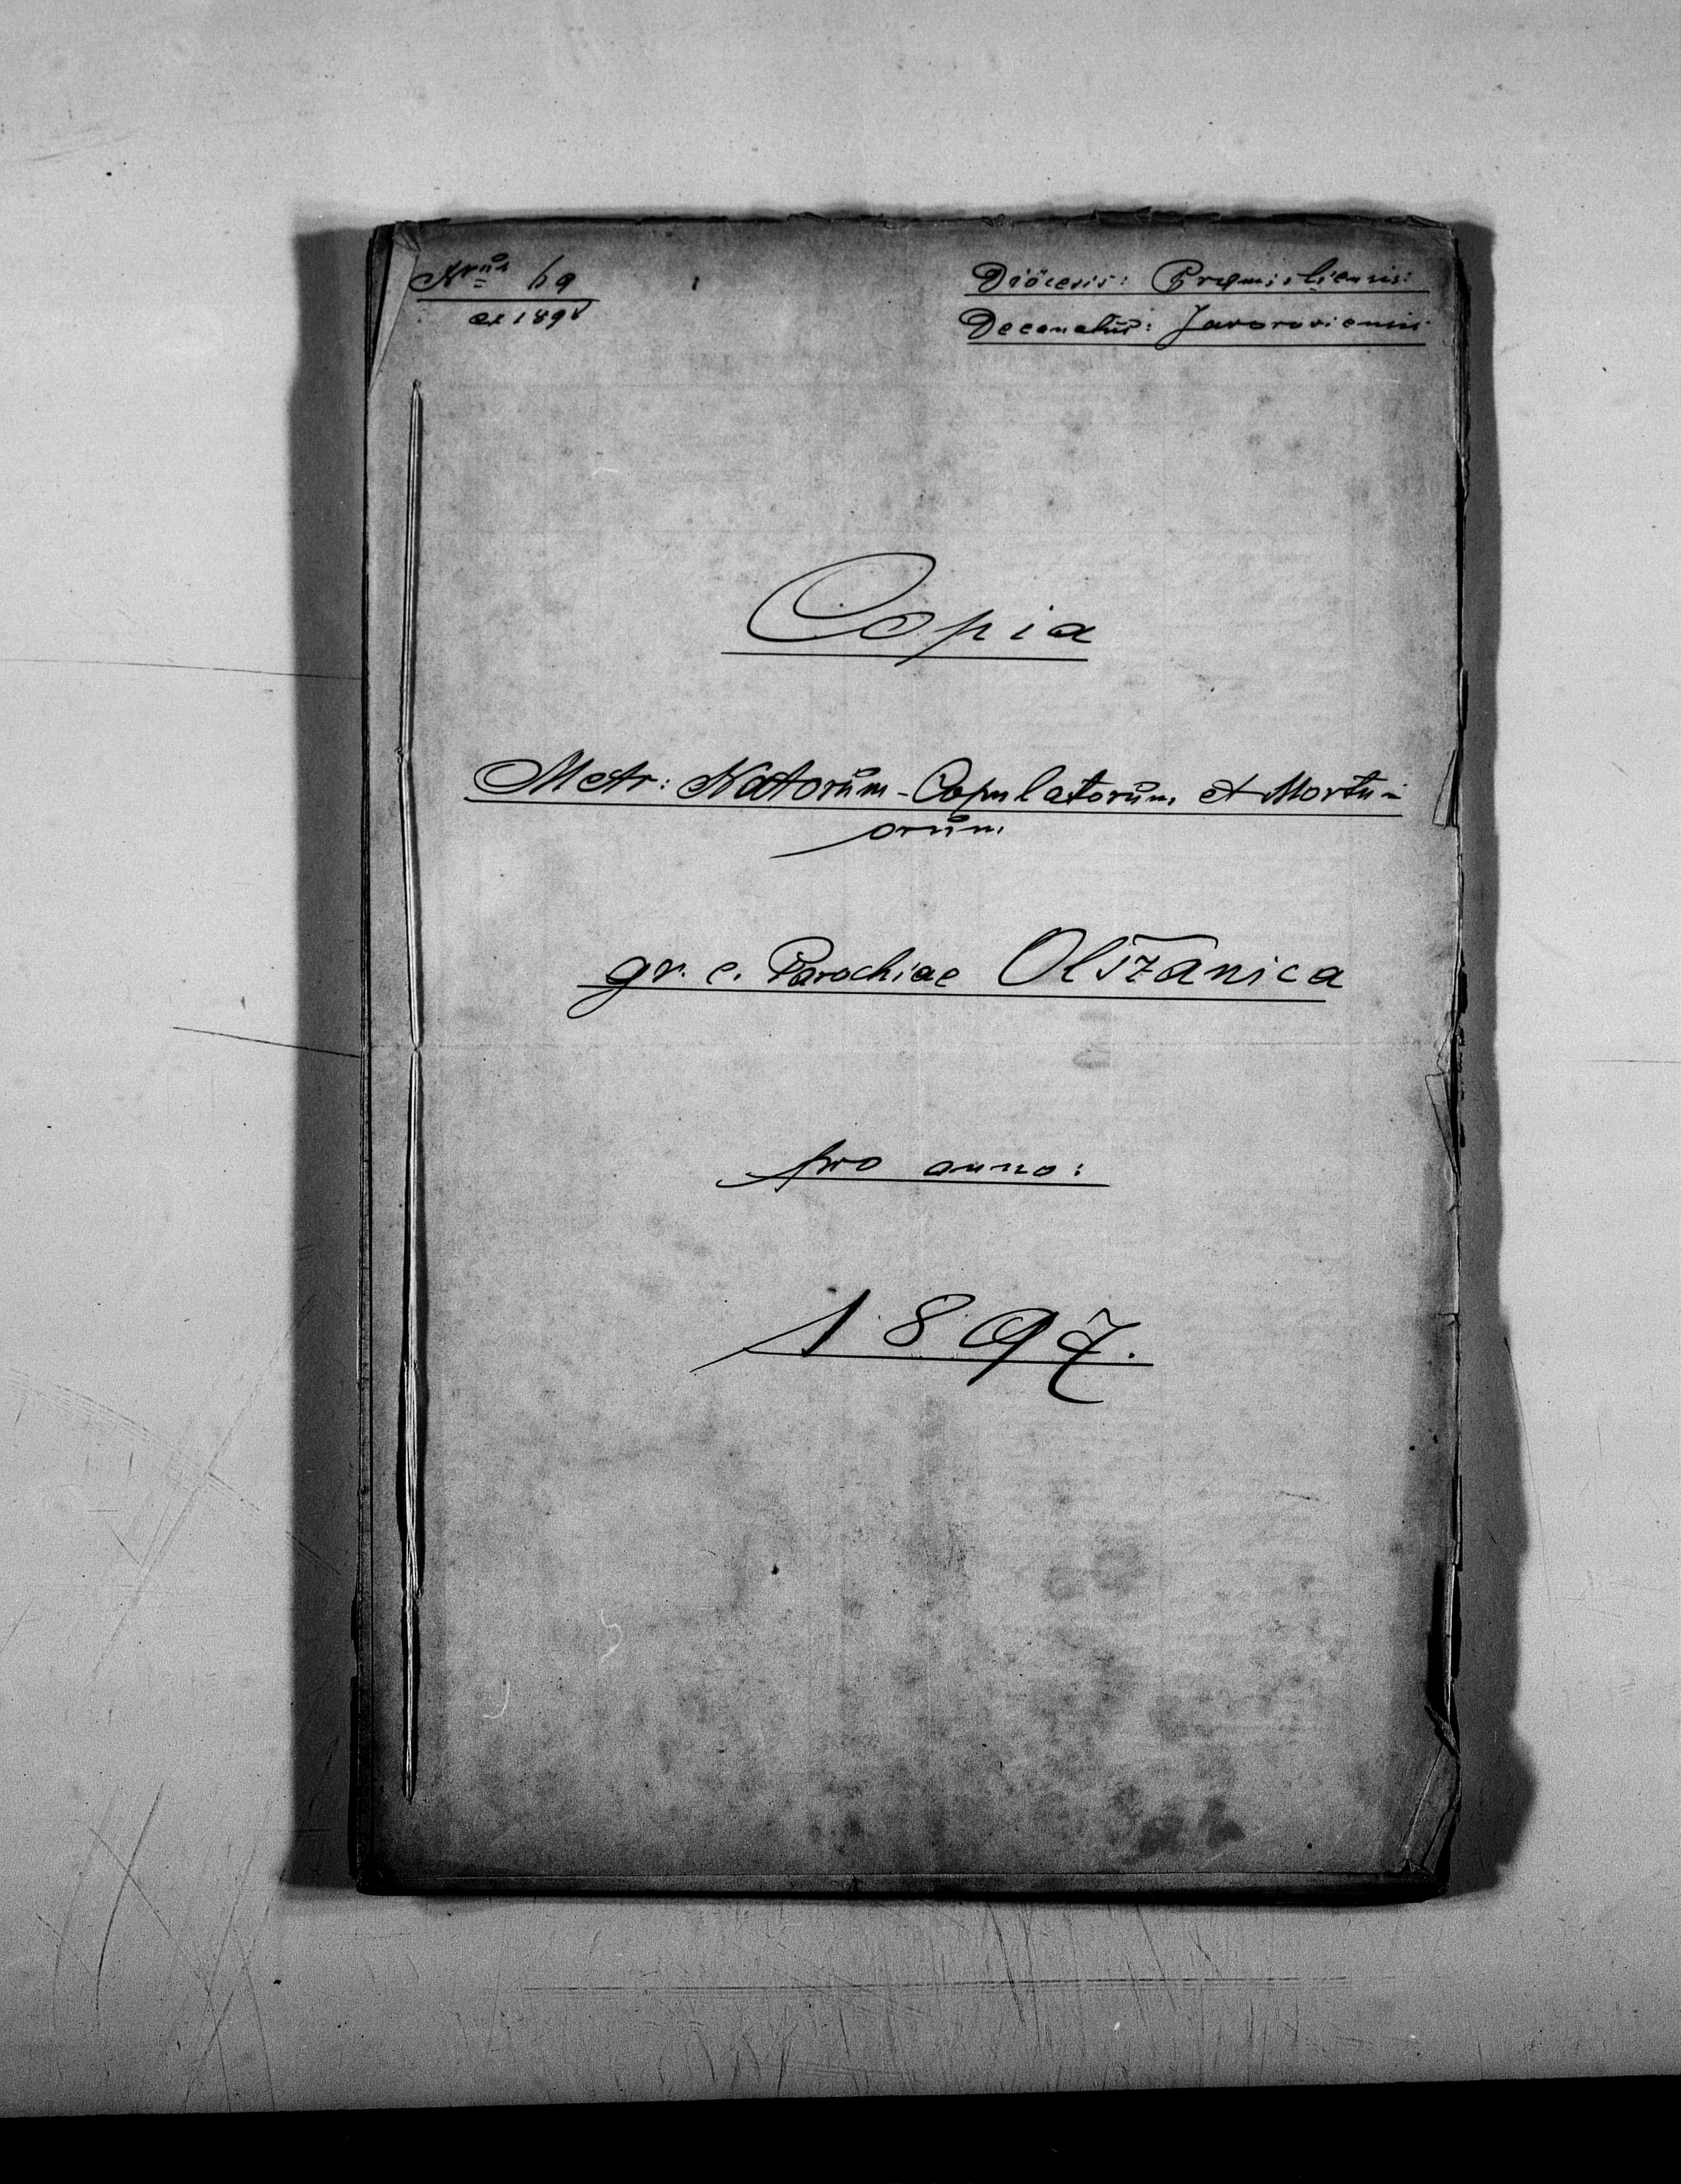 Nrus 69
ex 1898
Diöcesis: Premisliensis:
Decanatus: Javoroviensis
Copia
Metr: Natorum - Copulatorum et Mortu-
orum
gr. c. Parochiae Olszanica
pro anno:
1897.